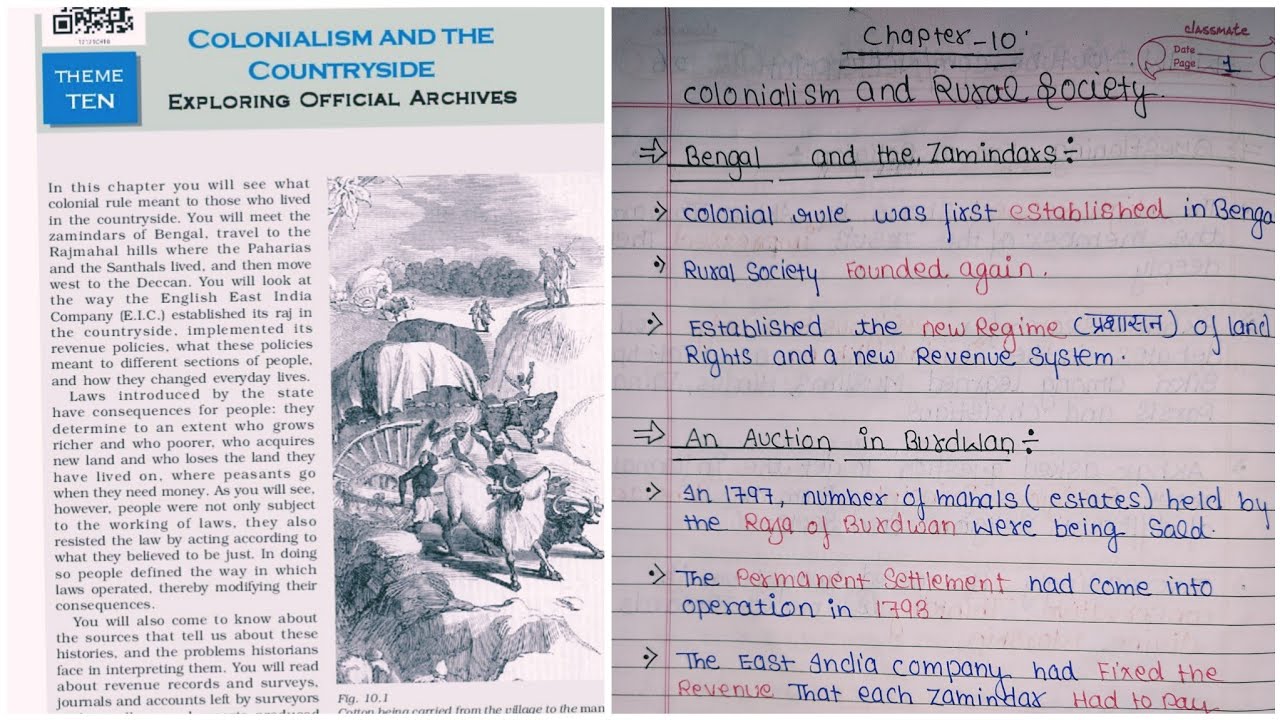 COLONIALISM AND THE
COUNTRYSIDE
EXPLORING OFFICIAL ARCHIVES
THEME
TEN
In this chapter you will see what
colonial rule meant to those who lived
in the countryside. You will meet the
zamindars of Bengal, travel to the
Rajmahal hills where the Paharias
and the Santhals lived, and then move
west to the Deccan. You will look at
the way the English East India
Company (E.I.C.) established its raj in
the countryside, implemented its
revenue policies, what these policies
meant to different sections of people,
and how they changed everyday lives.
Laws introduced by the state
have consequences for people: they
determine to an extent who grows
richer and who poorer, who acquires
new land and who loses the land they
have lived on, where peasants go
when they need money. As you will see,
however, people were not only subject
to the working of laws, they also
resisted the law by acting according to
what they believed to be just. In doing
so people defined the way in which
laws operated, thereby modifying their
consequences.
You will also come to know about
the sources that tell us about these
histories, and the problems historians
face in interpreting them. You will read
about revenue records and surveys,
journals and accounts left by surveyors
Fig. 10.1
Cotton being carried from the village to the man
classmate
Date
Page 1
Chapter-10
Colonialism and Rural Society.
⇒ Bengal and the Zamindars÷
Colonial rule was first established in Benga
Rural Society Founded again.
Established the new Regime (प्रशासन) of land
Rights and a new Revenue System.
⇒ An Auction in Burdwan÷
In 1797, number of mahals (estates) held by
the Raja of Burdwan were being Sold.
The Permanent Settlement had come into
operation in 1793.
The East India company had Fixed the
Revenue That each Zamindar Had to Pay